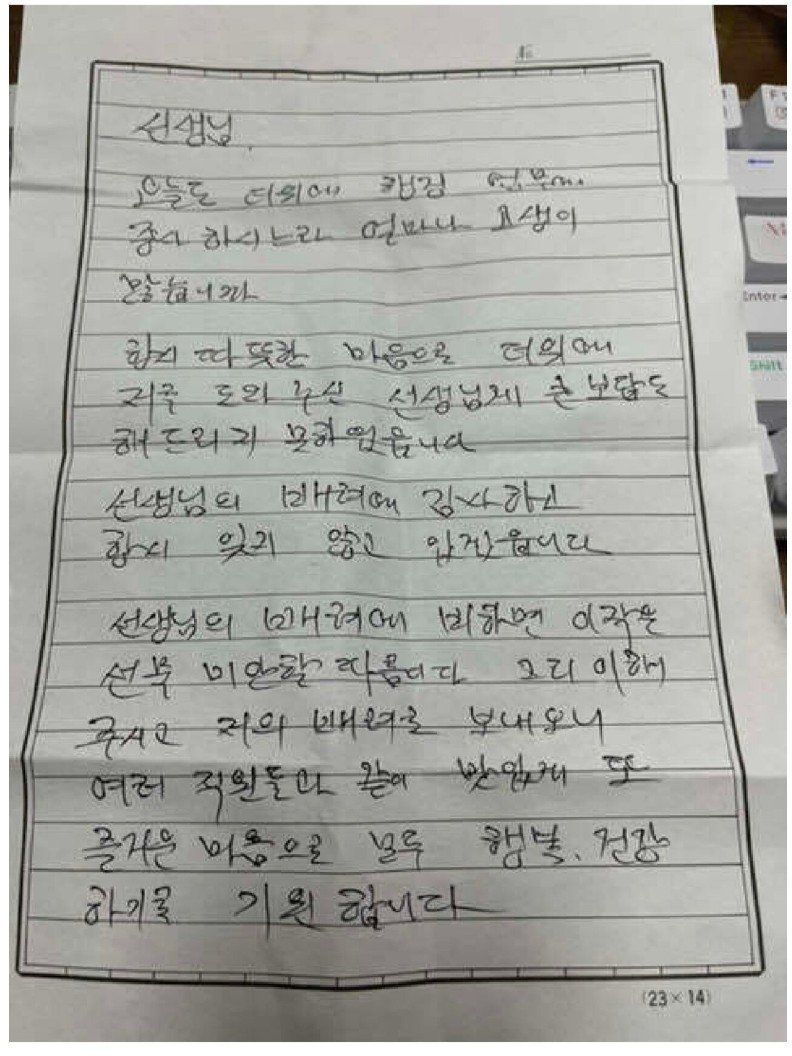 선생님.
오늘도 더위에 행정 업무에
종사 하시느라 얼마나 고생이
많습니까
항시 따뜻한 마음으로 더위에
저를 도와 주신 선생님게 큰 보답도
해 드리지 못하였읍니다
선생님의 배려에 감사하고
항시 잊지 않고 있겠읍니다
선생님의 배려에 비하면 이 작은
선물 미안할 따름이다 그리 이해
주시고 저의 배려로 보내오니
여러 직원들과 같이 맛있게 또
즐거운 마음으로 모두 행복, 건강
하기를 기원 합니다
(23×14)
Enter
Shift